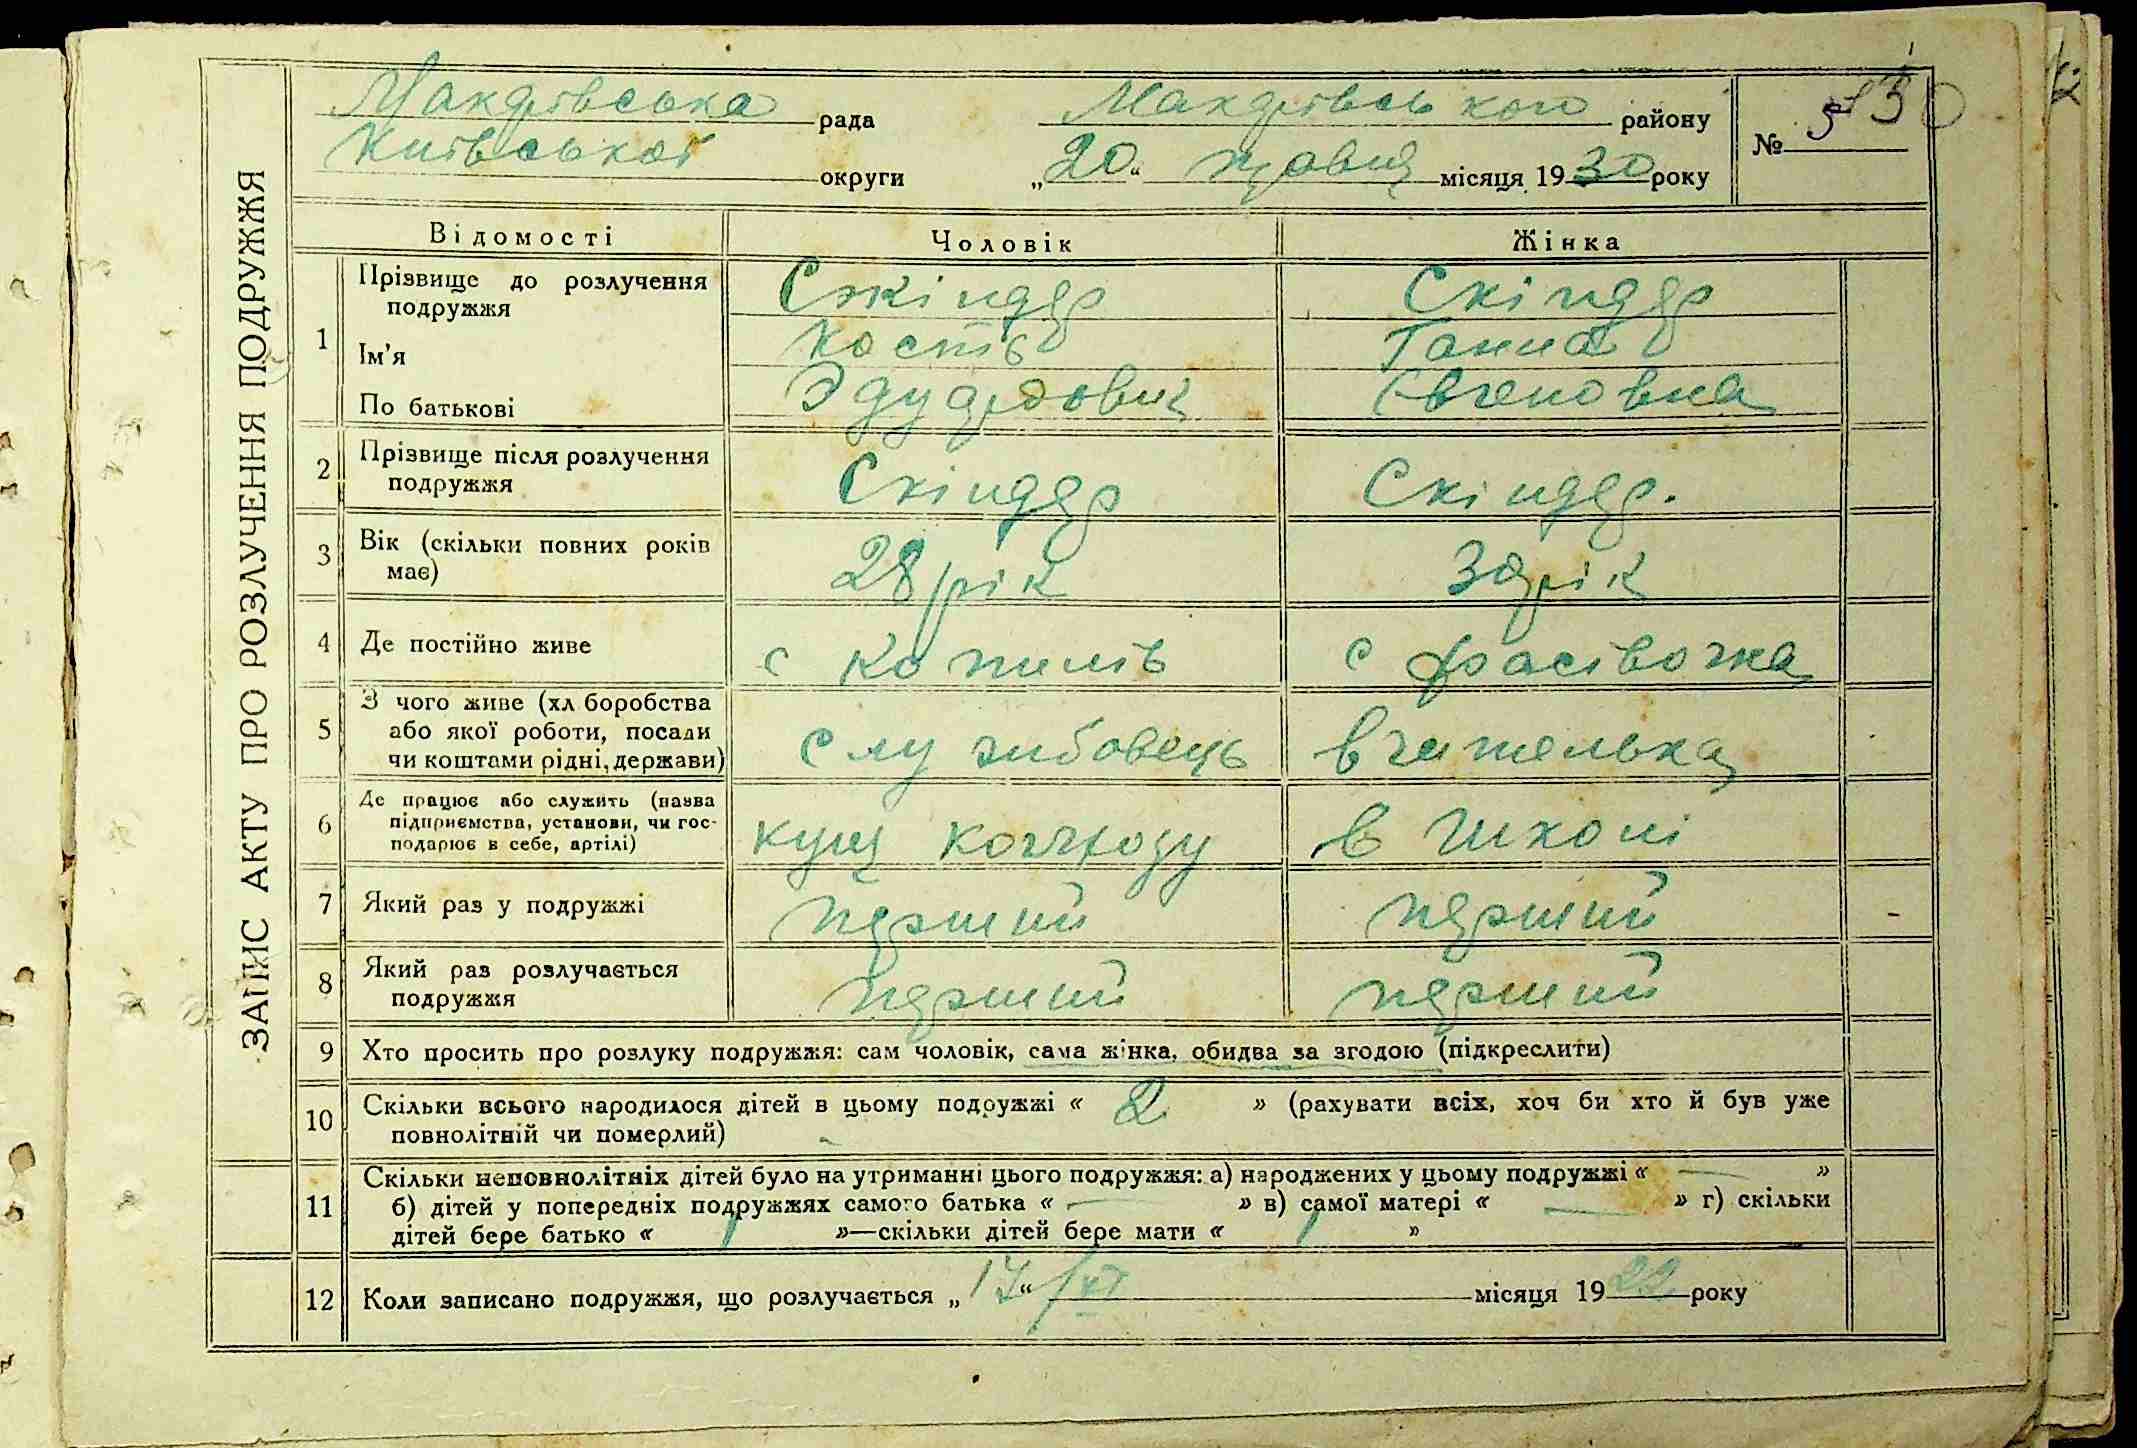 ЗАПИС АКТУ ПРО РОЗЛУЧЕННЯ ПОДРУЖЖЯ
Макарівська рада Макарівського району
Київської округи „20“ жовтня місяця 1930 року
№ 5
Відомості Чоловік Жінка
1 Прізвище до розлучення подружжя Скіндер Скіндер
Ім'я Кость Ганна
По батькові Эдуардович Євгеновна
2 Прізвище після розлучення подружжя Скіндер Скіндер.
3 Вік (скільки повних років має) 28 рік 30 рік
4 Де постійно живе с Копилів с Фасівочка
5 З чого живе (хлiборобства або якої роботи, посади чи коштами рідні, держави) Службовець Вчителька
6 Де працює або служить (назва підприємства, установи, чи господарює в себе, артілі) кущ колгоспу в школі
7 Який раз у подружжі перший перший
8 Який раз розлучається подружжя перший перший
9 Хто просить про розлуку подружжя: сам чоловік, сама жінка, обидва за згодою (підкреслити)
10 Скільки всього народилося дітей в цьому подружжі « 2 » (рахувати всіх, хоч би хто й був уже
повнолітній чи померлий)
11 Скільки неповнолітніх дітей було на утриманні цього подружжя: а) народжених у цьому подружжі « — »
б) дітей у попередніх подружжях самого батька « — » в) самої матері « — » г) скільки
дітей бере батько « 1 »—скільки дітей бере мати « 1 »
12 Коли записано подружжя, що розлучається „17“ місяця 1922 року